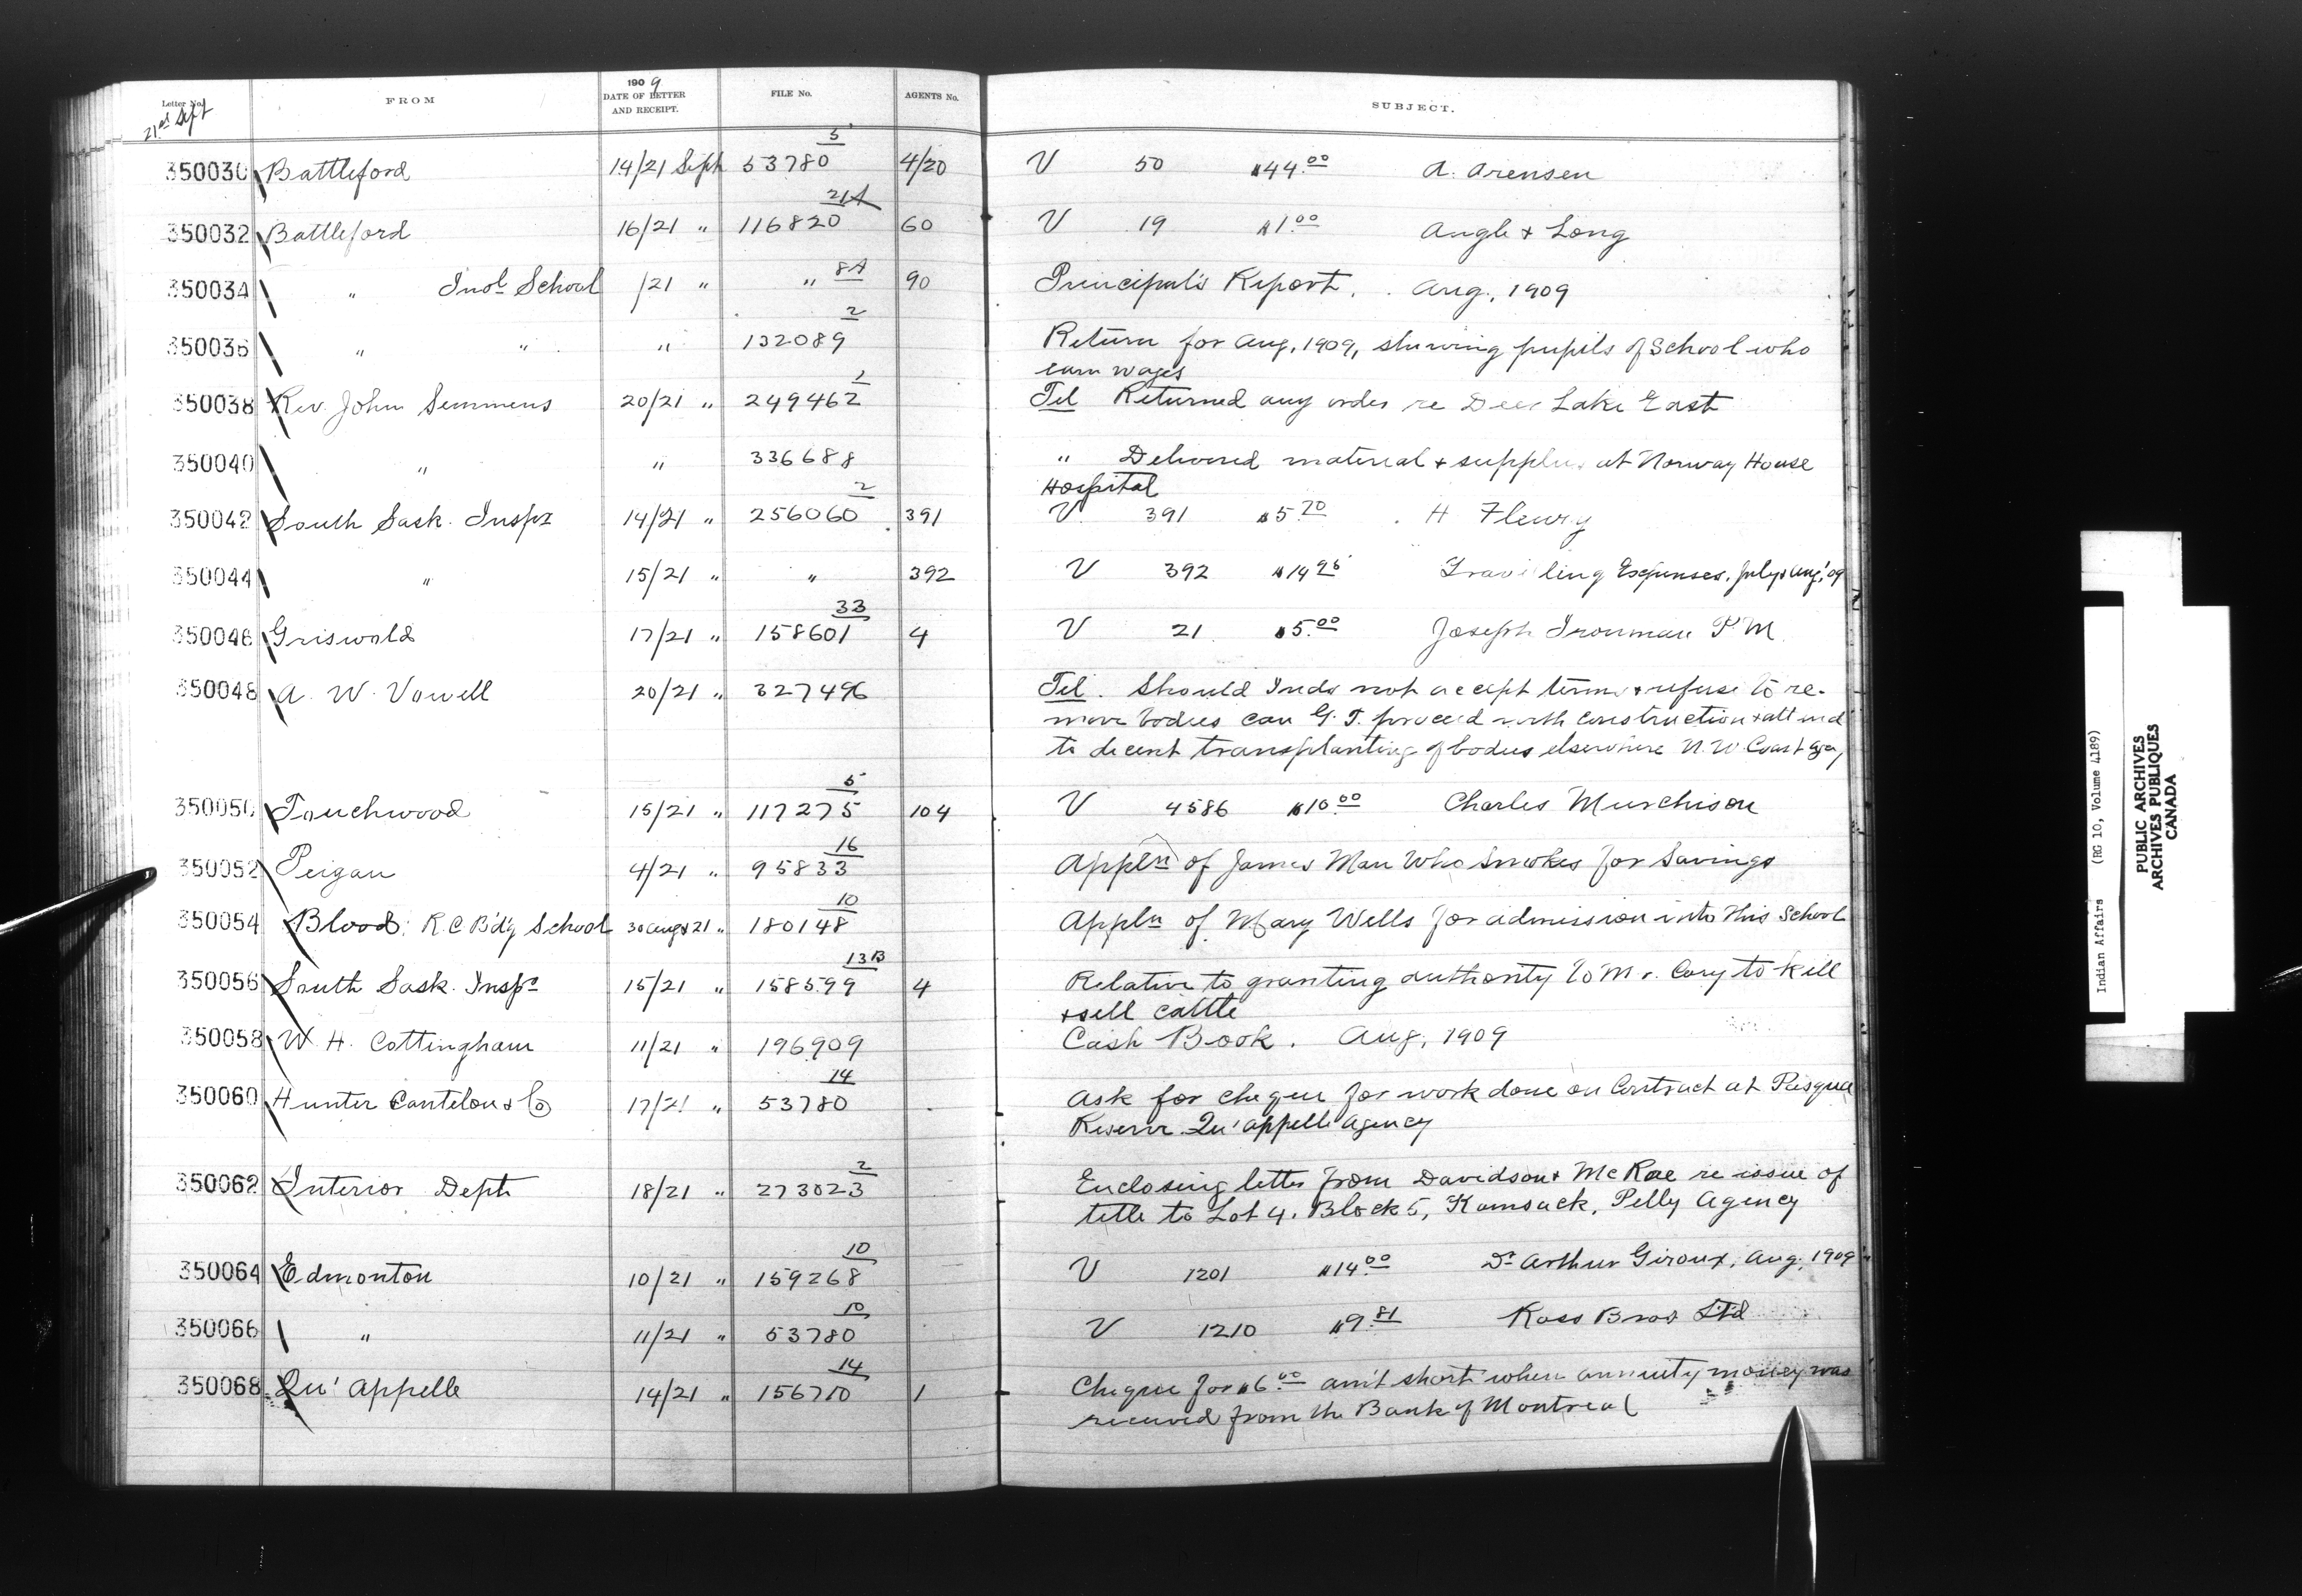 Letter No. FROM 1909 DATE OF LETTER AND RECEIPT. FILE No. AGENTS No. SUBJECT.
21st Sept
350030 Battleford 14/21 Sept 53780 5 4/20 V 50 $44.00 A. Arensen
350032 Battleford 16/21 " 116820 21A 60 V 19 $1.00 Angle & Long
350034 " Indl School /21 " " 8A 90 Principal's Report. Aug., 1909
350036 " " " 132089 2 Return for Aug, 1909, showing pupils of School who
earn wages
350038 Rev. John Semmens 20/21 " 249462 1 Tel Returned any order re Deer Lake East
350040 " " 336688 " Delivered material & supplies at Norway House
Hospital
350042 South Sask. Inspr 14/21 " 256060 2 391 V 391 $5.70 H Fleury
350044 " 15/21 " " 392 V 392 $14.95 Travelling Expenses, July & Aug, '09
350046 Griswold 17/21 " 158601 33 4 V 21 $5.00 Joseph Ironman P.M.
350048 A. W. Vowell 20/21 " 327496 Tel. Should Inds not accept terms & refuse to re-
move bodies can G.T. proceed with construction & attend
to decent transplanting of bodies elsewhere N.W. Coast Agcy
350050 Touchwood 15/21 " 117275 5 104 V 4586 $10.00 Charles Murchison
350052 Peigan 4/21 " 95833 16 Appln of James Man Who Smokes for Savings
350054 Blood, R.C. Bd'g School 30 Aug & 21 " 180148 10 Appln of Mary Wells for admission into this School
350056 South Sask. Inspr 15/21 " 158599 13B 4 Relative to granting authority to Mr. Cory to kill
& sell cattle
350058 W. H. Cottingham 11/21 " 196909 Cash Book. Aug, 1909
350060 Hunter Cantelon & Co 17/21 " 53780 14 Ask for cheque for work done on Contract at Pasqua
Reserve Qu'appelle Agency
350062 Interior Dept 18/21 " 273023 2 Enclosing letter from Davidson & McRae re issue of
title to Lot 4. Block 5, Kamsack, Pelly Agency
350064 Edmonton 10/21 " 159268 10 V 1201 $14.00 Dr Arthur Giroux, Aug, 1909
350066 " 11/21 " 53780 10 V 1210 $9.81 Ross Bros Ltd
350068 Qu'Appelle 14/21 " 156710 14 1 Cheque for $6.00 am't short when annuity money was
received from the Bank of Montreal
Indian Affairs (RG 10, Volume 4189)
PUBLIC ARCHIVES
ARCHIVES PUBLIQUES
CANADA